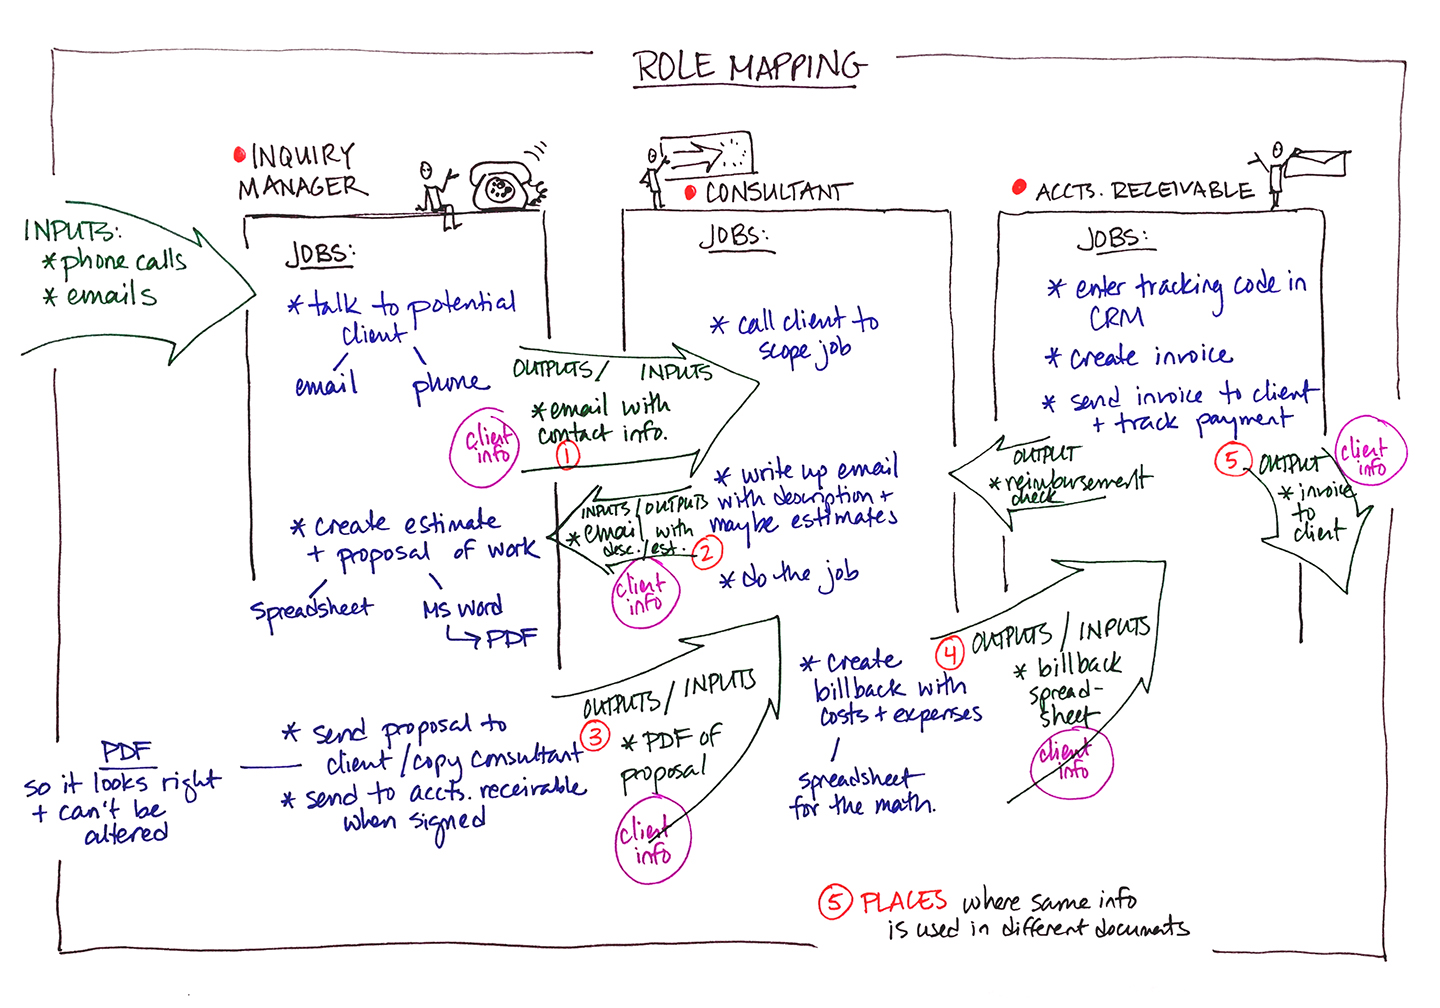 ROLE MAPPING
INPUTS:
* phone calls
* emails
• INQUIRY
MANAGER
JOBS:
* talk to potential
client
email
phone
OUTPUTS / INPUTS
* email with
contact info.
1
client
info
* create estimate
+ proposal of work
spreadsheet
MS WORD
↳ PDF
INPUTS / OUTPUTS
* email with
desc. / est.
2
client
info
* send proposal to
client / copy consultant
* send to accts. receivable
when signed
PDF
so it looks right
+ can't be
altered
OUTPUTS / INPUTS
3
* PDF of
proposal
client
info
• CONSULTANT
JOBS:
* call client to
scope job
* write up email
with description +
maybe estimates
* do the job
* create
billback with
costs + expenses
spreadsheet
for the math.
4
OUTPUTS / INPUTS
* billback
spread-
sheet
client
info
• ACCTS. RECEIVABLE
JOBS:
* enter tracking code in
CRM
* create invoice
* send invoice to client
+ track payment
OUTPUT
* reimbursement
check
5
OUTPUT
* invoice
to
client
client
info
5 PLACES where same info
is used in different documents